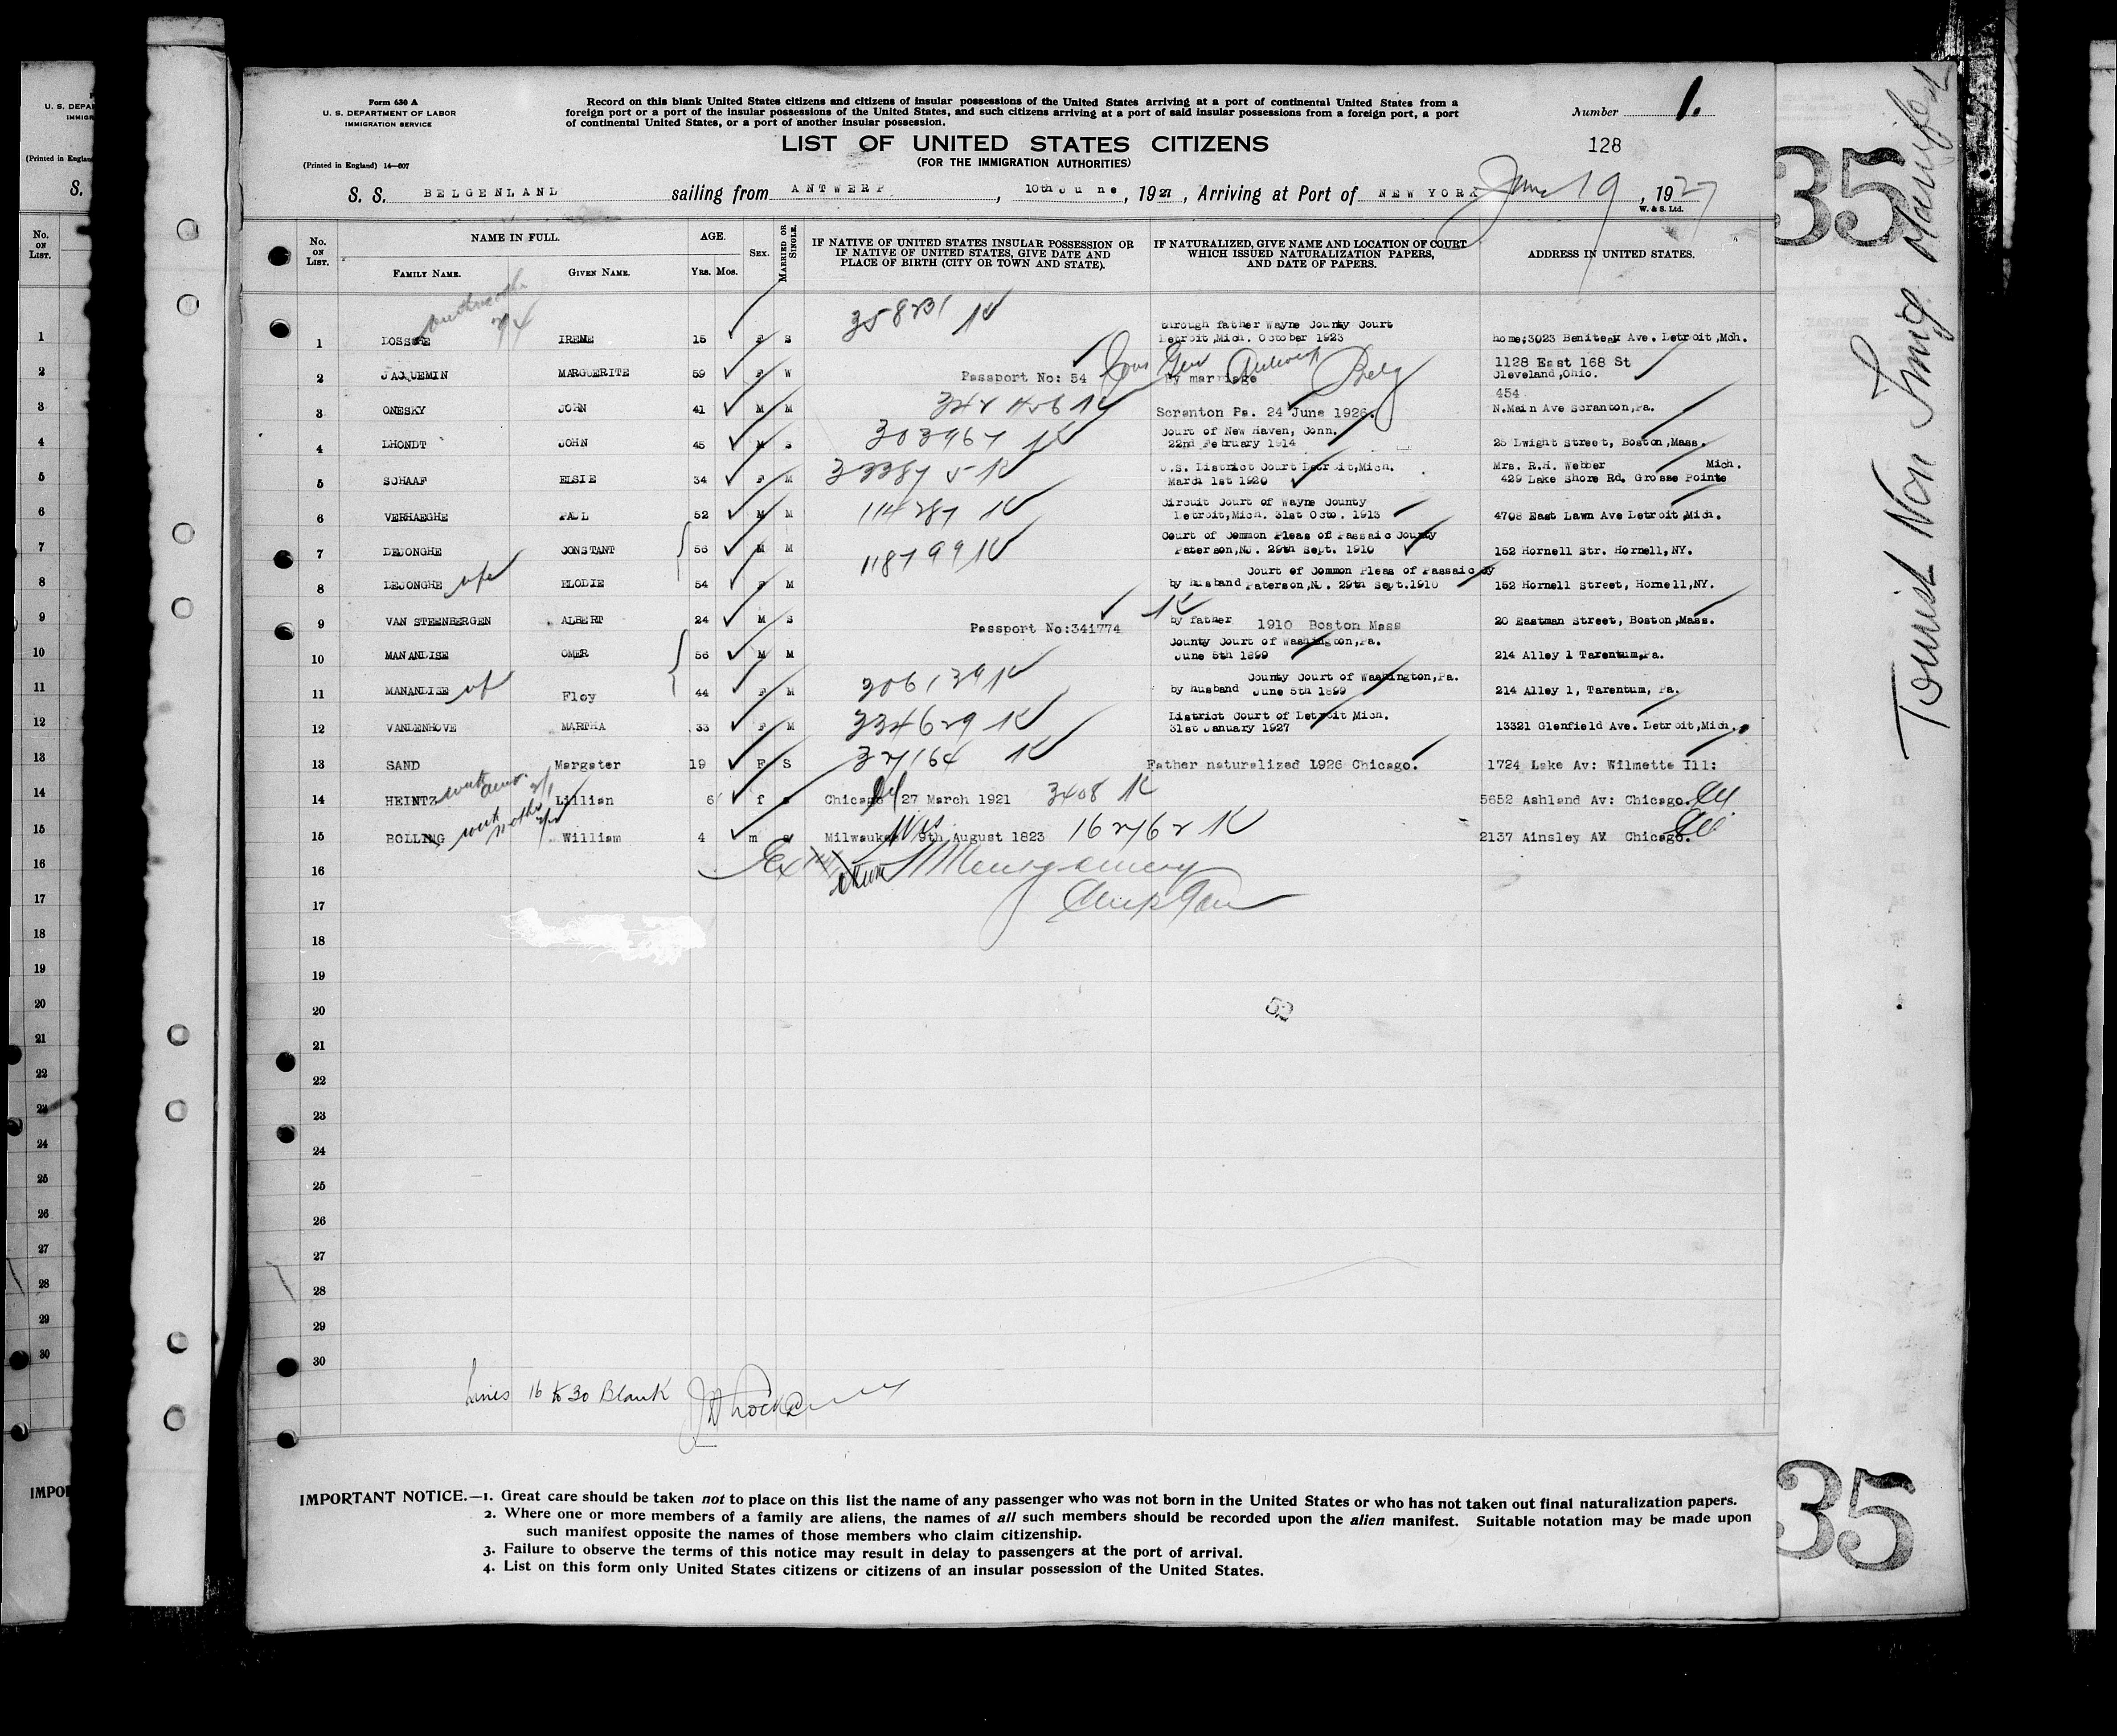 Form 630 A
U. S. DEPARTMENT OF LABOR
IMMIGRATION SERVICE
(Printed in England) 14—807
Record on this blank United States citizens and citizens of insular possessions of the United States arriving at a port of continental United States from a
foreign port or a port of the insular possessions of the United States, and such citizens arriving at a port of said insular possessions from a foreign port, a port
of continental United States, or a port of another insular possession.
Number 1.
LIST OF UNITED STATES CITIZENS
(FOR THE IMMIGRATION AUTHORITIES)
128
S. S. BELGENLAND sailing from ANTWERP, 10th June, 1927, Arriving at Port of NEW YORK June 19, 1927
W. & S. Ltd.
No. ON LIST. NAME IN FULL. FAMILY NAME. GIVEN NAME. AGE. Yrs. Mos. SEX. MARRIED OR SINGLE. IF NATIVE OF UNITED STATES INSULAR POSSESSION OR IF NATIVE OF UNITED STATES, GIVE DATE AND PLACE OF BIRTH (CITY OR TOWN AND STATE). IF NATURALIZED, GIVE NAME AND LOCATION OF COURT WHICH ISSUED NATURALIZATION PAPERS, AND DATE OF PAPERS. ADDRESS IN UNITED STATES.
1 IRENE 15 F S 358231 through father Wayne County Court Detroit,Mich. October 1923 home;3023 Beniteau Ave. Detroit,Mch.
2 JAQUEMIN MARGUERITE 59 F W Passport No: 54 Cons Gen Antwerp Belg By marriage 1128 East 168 St Cleveland,Ohio.
3 ONESKY JOHN 41 M M 342456 Scranton Pa. 24 June 1926. 454 N.Main Ave Scranton,Pa.
4 DHONDT JOHN 45 M S 303967 Court of New Haven, Conn. 22nd February 1914 25 Dwight Street, Boston,Mass.
5 SCHAAF ELSIE 34 F M U.S. District Court Detroit,Mich. March 1st 1920 Mrs. R.H. Webber Mich. 429 Lake Shore Rd. Grosse Pointe
6 VERHAEGHE PAUL 52 M M 114287 Circuit Court of Wayne County Detroit,Mich. 31st Octo. 1913 4708 East Lawn Ave Detroit,Mich.
7 DEJONGHE CONSTANT 56 M M 118799 Court of Common Pleas of Passaic County Paterson,NJ. 29th Sept. 1910 152 Hornell Str. Hornell, NY.
8 DEJONGHE wife ELODIE 54 F M by husband Court of Common Pleas of Passaic Cy Paterson,NJ. 29th Sept.1910 152 Hornell Street, Hornell,NY.
9 VAN STEENBERGEN ALBERT 24 M S Passport No:341774 by father 1910 Boston Mass 20 Eastman Street, Boston,Mass.
10 MANANDISE OMER 56 M M County Court of Washington,Pa. June 5th 1899 214 Alley 1 Tarentum,Pa.
11 MANANDISE Floy 44 F M 206139 by husband County Court of Washington,Pa. June 5th 1899 214 Alley 1, Tarentum, Pa.
12 VANDENHOVE MARTHA 33 F M 334629 District Court of Detroit Mich. 31st January 1927 13321 Glenfield Ave. Detroit,Mich.
13 SAND Margater 19 F S 327164 Father naturalized 1926 Chicago. 1724 Lake Av: Wilmette Ill:
14 HEINTZ with aunt Lillian 6 f s Chicago Ill 27 March 1921 3408 5652 Ashland Av: Chicago. Ill
15 BOLLING with mother William 4 m s Milwaukee Wis 9th August 1823 162762 2137 Ainsley AV Chicago. Ill
16 Montgomery
17
18
19
20
52
21
22
23
24
25
26
27
28
29
30
Lines 16 to 30 Blank
IMPORTANT NOTICE.—1. Great care should be taken not to place on this list the name of any passenger who was not born in the United States or who has not taken out final naturalization papers.
2. Where one or more members of a family are aliens, the names of all such members should be recorded upon the alien manifest. Suitable notation may be made upon
such manifest opposite the names of those members who claim citizenship.
3. Failure to observe the terms of this notice may result in delay to passengers at the port of arrival.
4. List on this form only United States citizens or citizens of an insular possession of the United States.
35
Tourist Non Immig Manifest
35